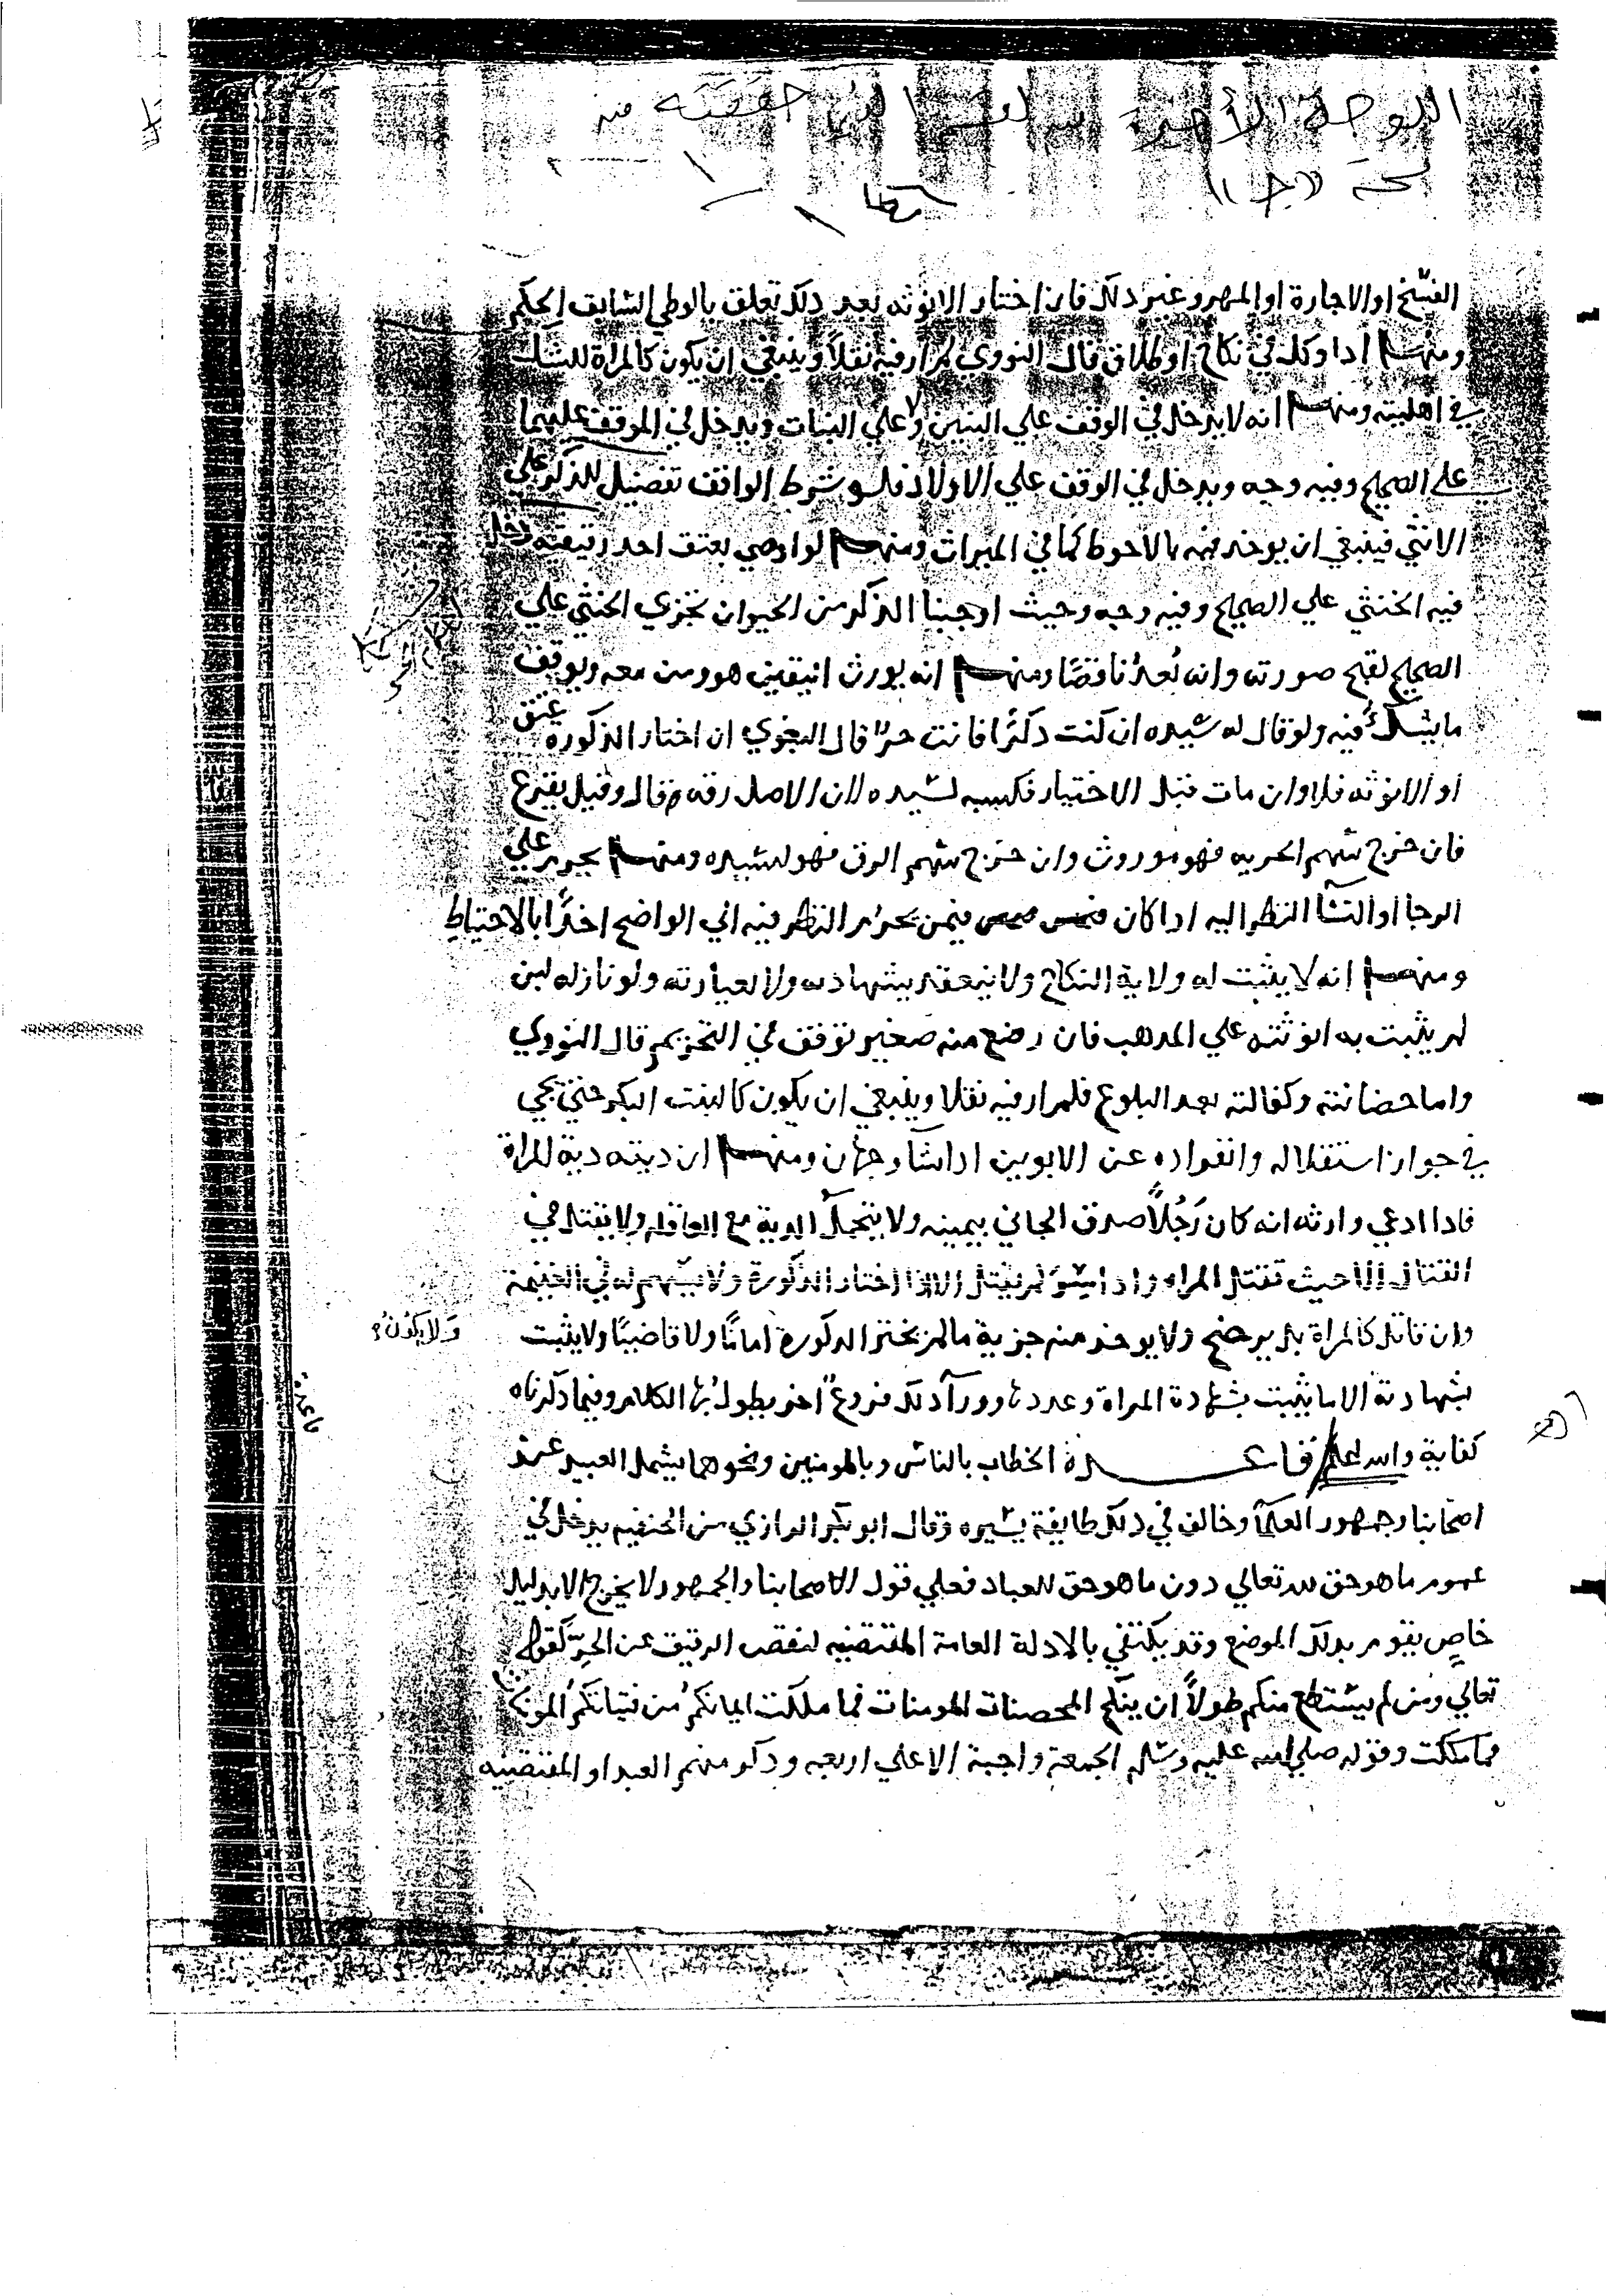 اللوحة الأخيرة من القسم الذي حققته من
نسخة «ج»
الفسخ او الاجارة او المهر وغير ذلك فان اختار الانوثه بعد ذلك تعلق بالوطي السابق الحكم
ومنها اذا وكل في نكاح او طلاق قال النووي لم ار فيه نقلاً وينبغي ان يكون كالمراة للشك
في اهليته ومنها انه لا يدخل في الوقف علي البنين ولا علي البنات ويدخل في الموقف عليهما
علي الصحيح وفيه وجه ويدخل في الوقف علي الاولاد فلو شرط الواقف تفضيل للذكر علي
الانثي فينبغي ان يوخذ فيه بالاحوط كما في الميراث ومنها لو اوصي بعتق احد رقيقيه دخل
فيه الخنثي علي الصحيح وفيه وجه وحيث اوجبنا الذكر من الحيوان يجزي الخنثي علي
الصحيح لقبح صورته وانه يُعدُ ناقصًا ومنها انه يورث اليقين هو ومن معه ويوقف
ما يشكُ فيه ولو قال له سيده ان كنت ذكرًا فانت حرٌ قال البغوي ان اختار الذكورة عتق
او الانوثه فلا وان مات قبل الاختيار فكسبه لسيده لان الاصل رقه قال وقيل يقرع
فان خرج سهم الحريه فهو موروث وان خرج سهم الرق فهو لسيده ومنها يحرم علي
الرجا او النسا النظر اليه اذا كان فيمن يحرم النظر فيه الي الواضح اخذًا بالاحتياط
ومنها انه لا يثبت له ولاية النكاح ولا ينعقد بشهادته ولا بعبارته ولو نازله لبن
لم يثبت به انوثته علي المذهب فان رضع منه صغير توقف في التحريم قال النووي
واما حضانته وكفالته بعد البلوغ فلم ار فيه نقلا وينبغي ان يكون كالبنت البكر حتي يجي
في جواز استقلاله وانفراده عن الابوين اذا شا وجهان ومنها ان ديته دية المراة
فاذا ادعي وارثه انه كان رَجُلاً صدق الجاني بيمينه ولا يتحمل الدية مع العاقله ولا يقتل في
القتال الا حيث تقتل المراه واذا اسر لم يقتل الا اذا اختار الذكورة ولا يسهم له في الغنيمة
وان قاتل كالمراة بل يرضخ ولا يوخذ منه جزية ما لم يختر الذكورة امامًا ولا قاضيًا ولا يثبت
ولا يكون
بشهادته الا ما يثبت بشهادة المراة وعددها وورآ ذلك فروع اخر يطول بها الكلام وفيما ذكرناه
كفاية والله اعلم قاعدة الخطاب بالناس وبالمومنين ونحوهما يشمل العبيد عند
قاعدة
اصحابنا وجمهور العلمآ وخالف في ذلك طايفة يسيره وقال ابو بكر الرازي من الحنفيه يدخل في
عموم ما هو حق لله تعالي دون ما هو حق للعباد فعلي قول اصحابنا والجمهور لا يخرج الا بدليل
خاصٍ يقوم بذلك الموضع وقد يكتفي بالادلة العامة المقتضيه لنقص الرقيق عن الحرّ كقوله
تعالي ومن لم يستطع منكم طولاً ان ينكح المحصنات المومنات فما ملكت ايمانكم من فتياتكم المومنات
فما ملكت وقوله صلي الله عليه وسلم الجمعة واجبة الا علي اربعه وذكر منهم العبد او المقتضيه